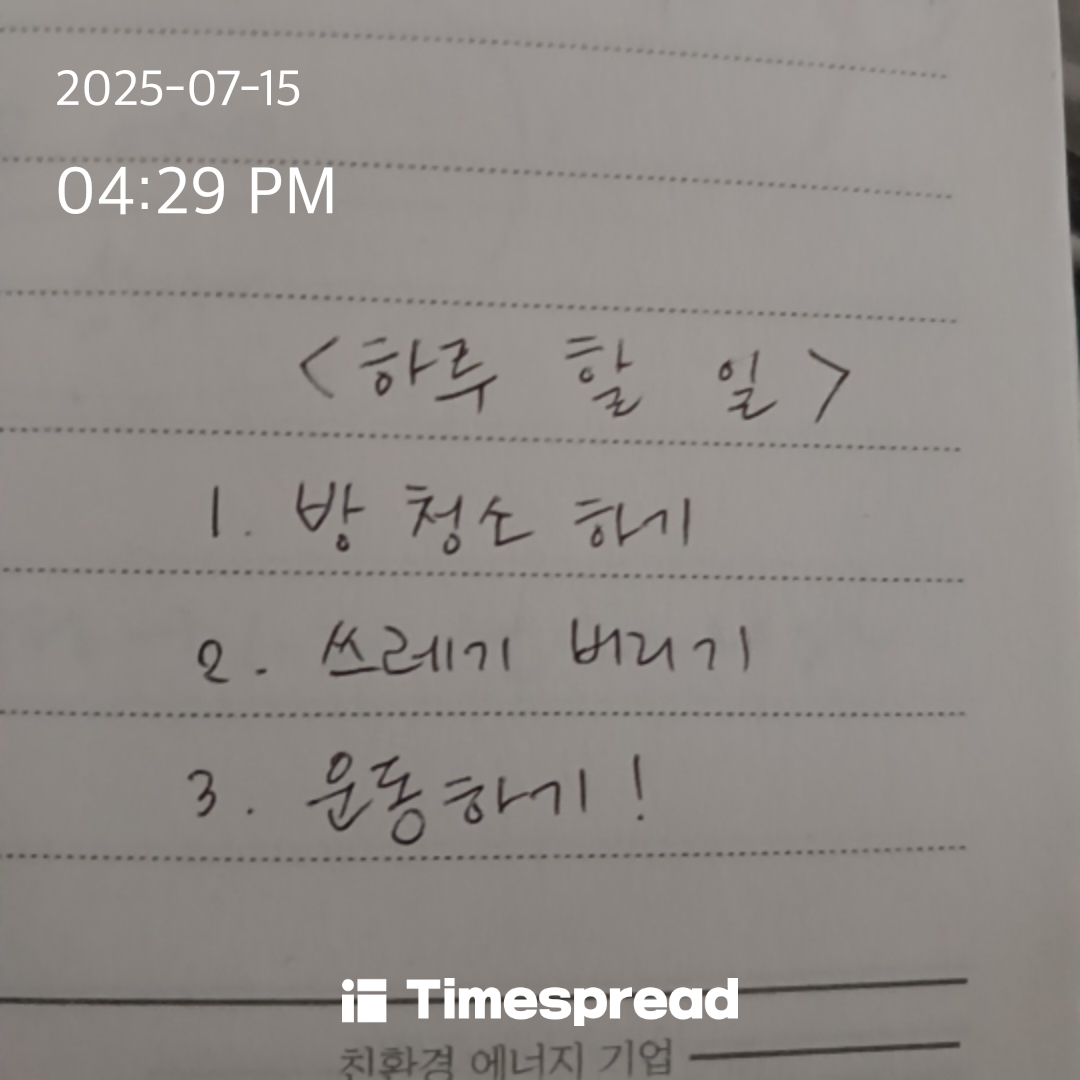 2025-07-15
04:29 PM
<하루 할 일>
1. 방 청소 하기
2. 쓰레기 버리기
3. 운동하기!
Timespread
친환경 에너지 기업